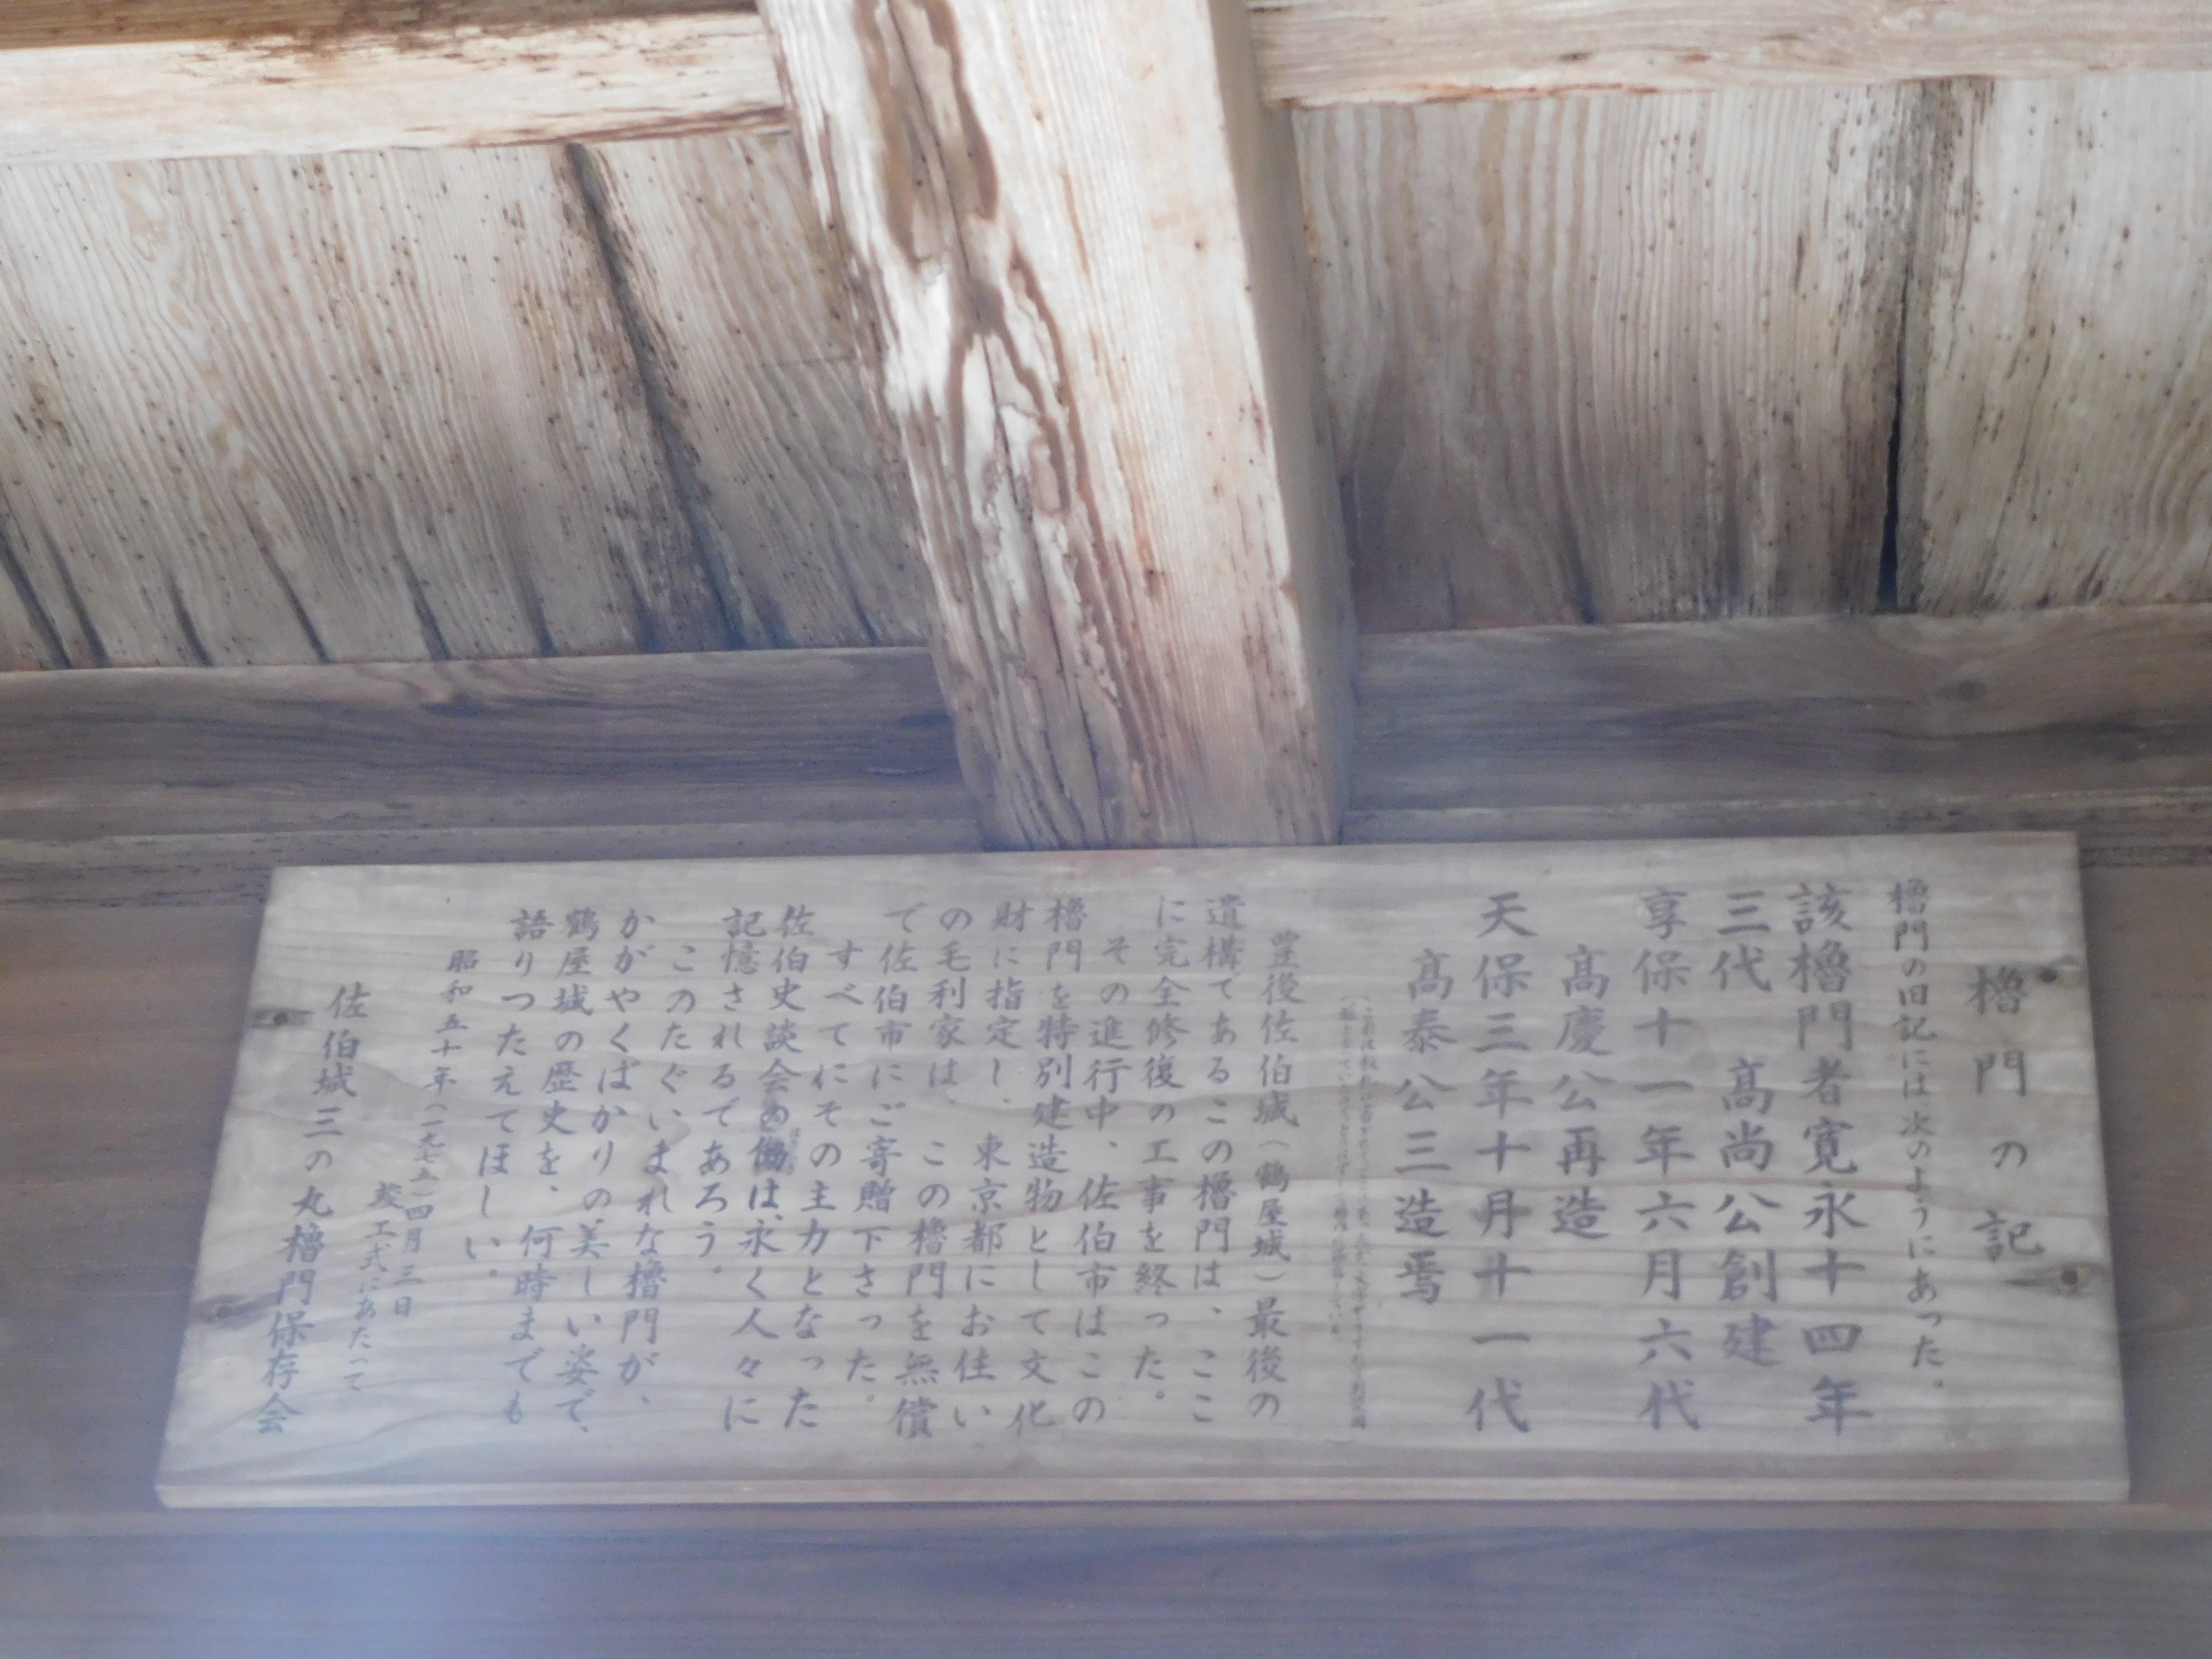 櫓門の記
櫓門の旧記には次のようにあった。
該櫓門者寛永十四年
三代　高尚公創建
享保十一年六月六代
高慶公再造
天保三年十月十一代
高泰公三造焉
豊後佐伯城（鶴屋城）最後の
遺構であるこの櫓門は、ここ
に完全修復の工事を終った。
その進行中、佐伯市はこの
櫓門を特別建造物として文化
財に指定し、東京都にお住い
の毛利家は、この櫓門を無償
で佐伯市にご寄贈下さった。
すべてにその主力となった
佐伯史談会の働は、永く人々に
記憶されるであろう。
このたぐいまれな櫓門が、
かがやくばかりの美しい姿で、
鶴屋城の歴史を、何時までも
語りつたえてほしい。
昭和五十年（一九七五）四月三日
竣工式にあたって
佐伯城三の丸櫓門保存会